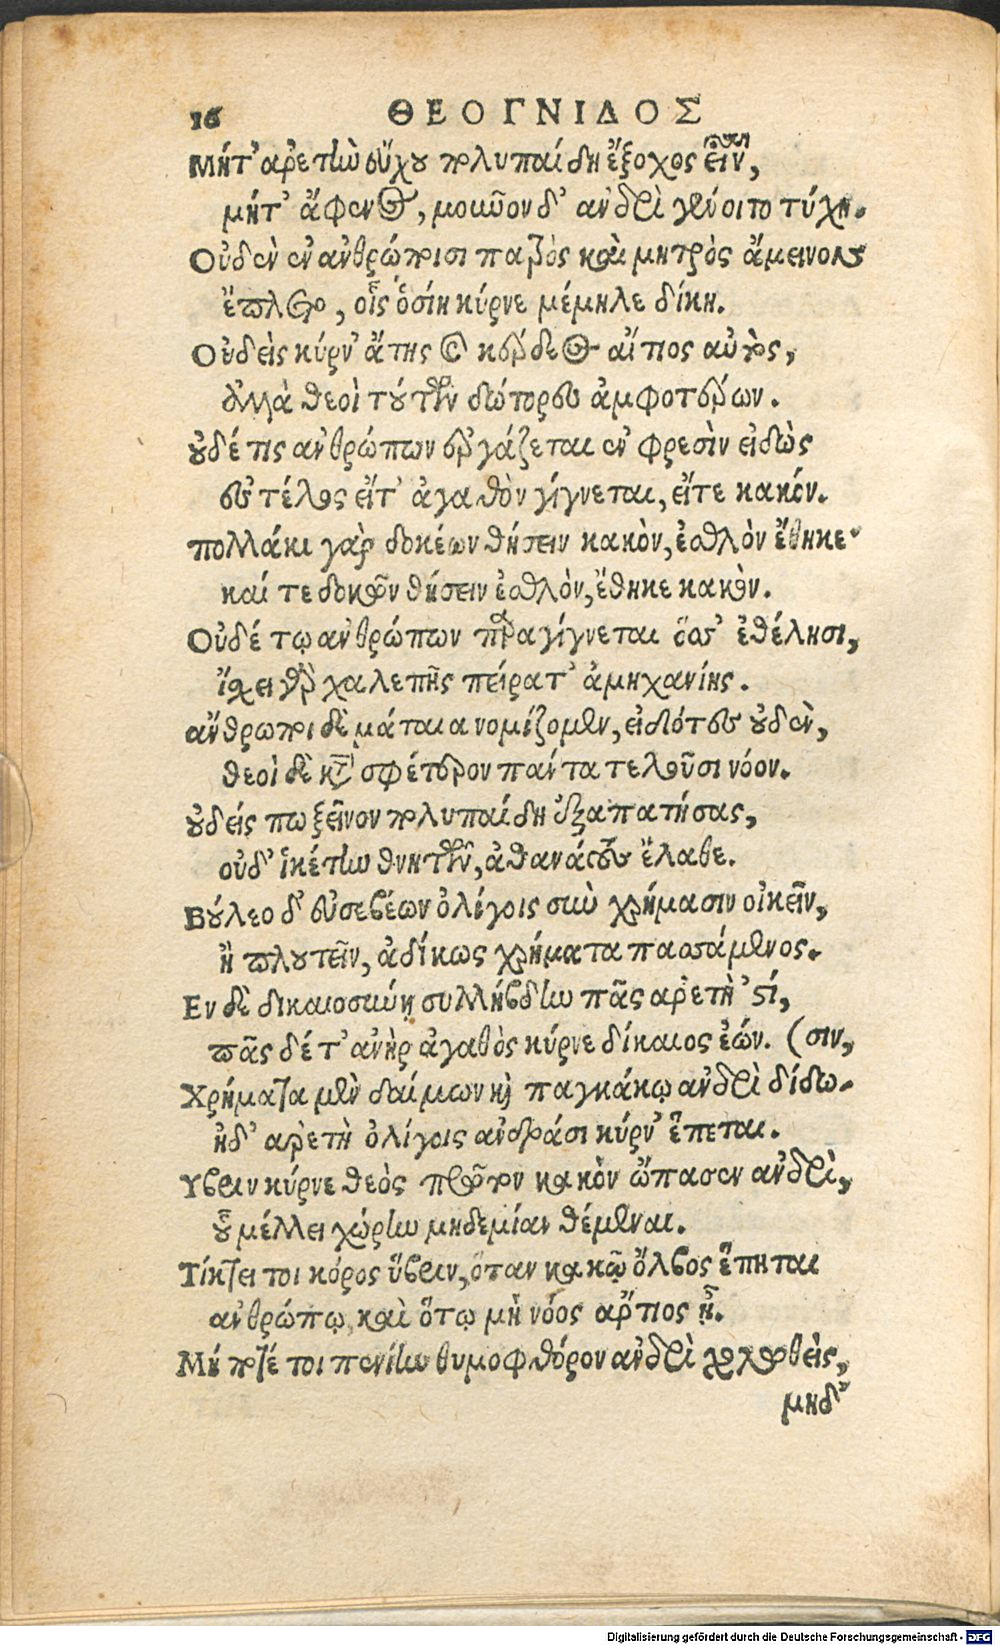 16 ΘΕΟΓΝΙΔΟΣ
Μήτ' ἀρετὴν εὔχου πολυπαίδη ἔξοχος εἶναι,
μήτ' ἄφενος, μοῦνον δ' ἀνδρὶ γένοιτο τύχη.
Οὐδὲν ἐν ἀνθρώποισι πατρὸς καὶ μητρὸς ἄμεινον
ἔπλετο, οἷς ὁσίη κύρνε μέμηλε δίκη.
Οὐδεὶς κύρν' ἄτης καὶ κέρδεος αἴτιος αὐτὸς,
ἀλλὰ θεοὶ τούτων δώτορες ἀμφοτέρων.
οὐδέ τις ἀνθρώπων ἐργάζεται ἐν φρεσὶν εἰδὼς
ἐς τέλος εἴτ' ἀγαθὸν γίγνεται, εἴτε κακόν.
πολλάκι γὰρ δοκέων θήσειν κακὸν, ἐσθλὸν ἔθηκε·
καί τε δοκῶν θήσειν ἐσθλὸν, ἔθηκε κακόν.
Οὐδέ τῳ ἀνθρώπων παραγίγνεται ὅσσ' ἐθέλησι,
ἴσχει γὰρ χαλεπῆς πείρατ' ἀμηχανίης.
ἄνθρωποι δὲ μάταια νομίζομεν, εἰδότες οὐδὲν,
θεοὶ δὲ κατὰ σφέτερον πάντα τελοῦσι νόον.
οὐδείς πω ξεῖνον πολυπαίδη ἐξαπατήσας,
οὐδ' ἱκέτην θνητῶν, ἀθανάτους ἔλαθε.
Βούλεο δ' εὐσεβέων ὀλίγοις σὺν χρήμασιν οἰκεῖν,
ἢ πλουτεῖν, ἀδίκως χρήματα πασσάμενος.
Εν δὲ δικαιοσύνῃ συλλήβδην πᾶς ἀρετὴ 'στί,
πᾶς δέ τ' ἀνὴρ ἀγαθὸς κύρνε δίκαιος ἐών. (σιν,
Χρήματα μὲν δαίμων καὶ παγκάκῳ ἀνδρὶ δίδω-
ἠδ' ἀρετὴ ὀλίγοις ἀνδράσι κύρν' ἕπεται.
Υβριν κύρνε θεὸς πρῶτον κακὸν ὤπασεν ἀνδρὶ,
οὗ μέλλει χώρην μηδεμίαν θέμεναι.
Τίκτει τοι κόρος ὕβριν, ὅταν κακῷ ὄλβος ἕπηται
ἀνθρώπῳ, καὶ ὅτῳ μὴ νόος ἄρτιος ᾖ.
Μή ποτέ τοι πενίην θυμοφθόρον ἀνδρὶ χολωθεὶς,
μηδ'
Digitalisierung gefördert durch die Deutsche Forschungsgemeinschaft - DFG